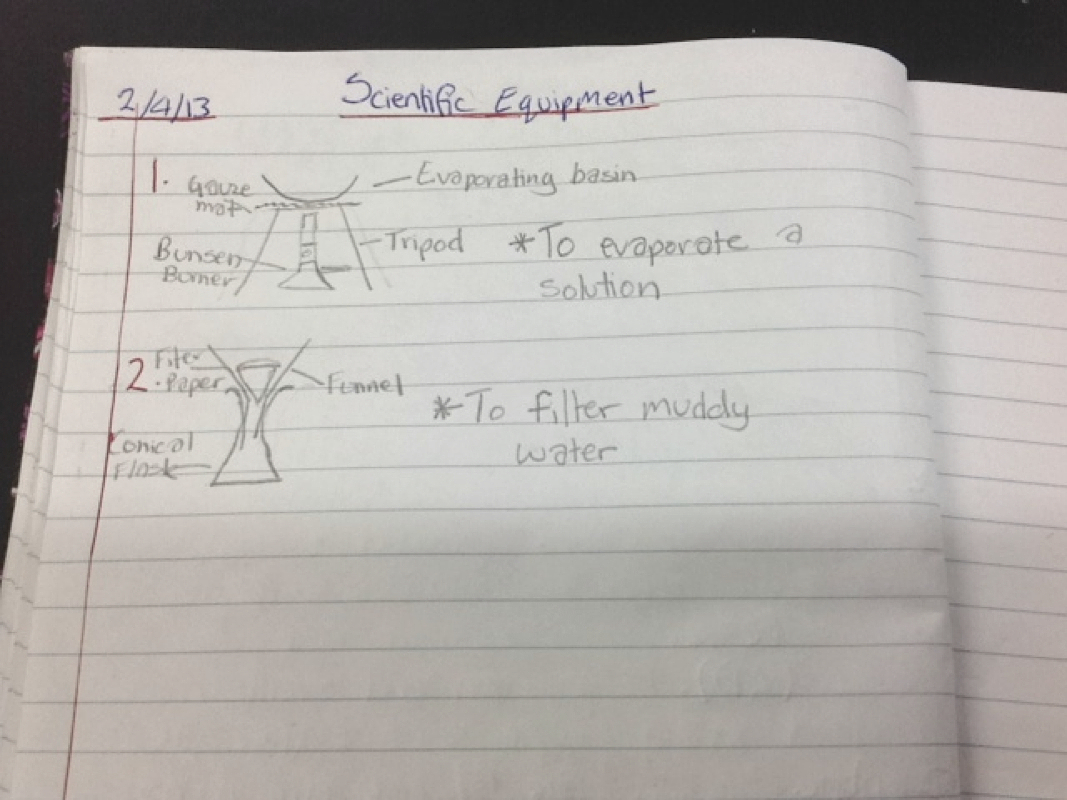 2/4/13 Scientific Equipment
1. Gauze
mat
Evaporating basin
Bunsen
Burner
Tripod
*To evaporate a
solution
2 Filter
Paper
Funnel
Conical
Flask
*To filter muddy
water